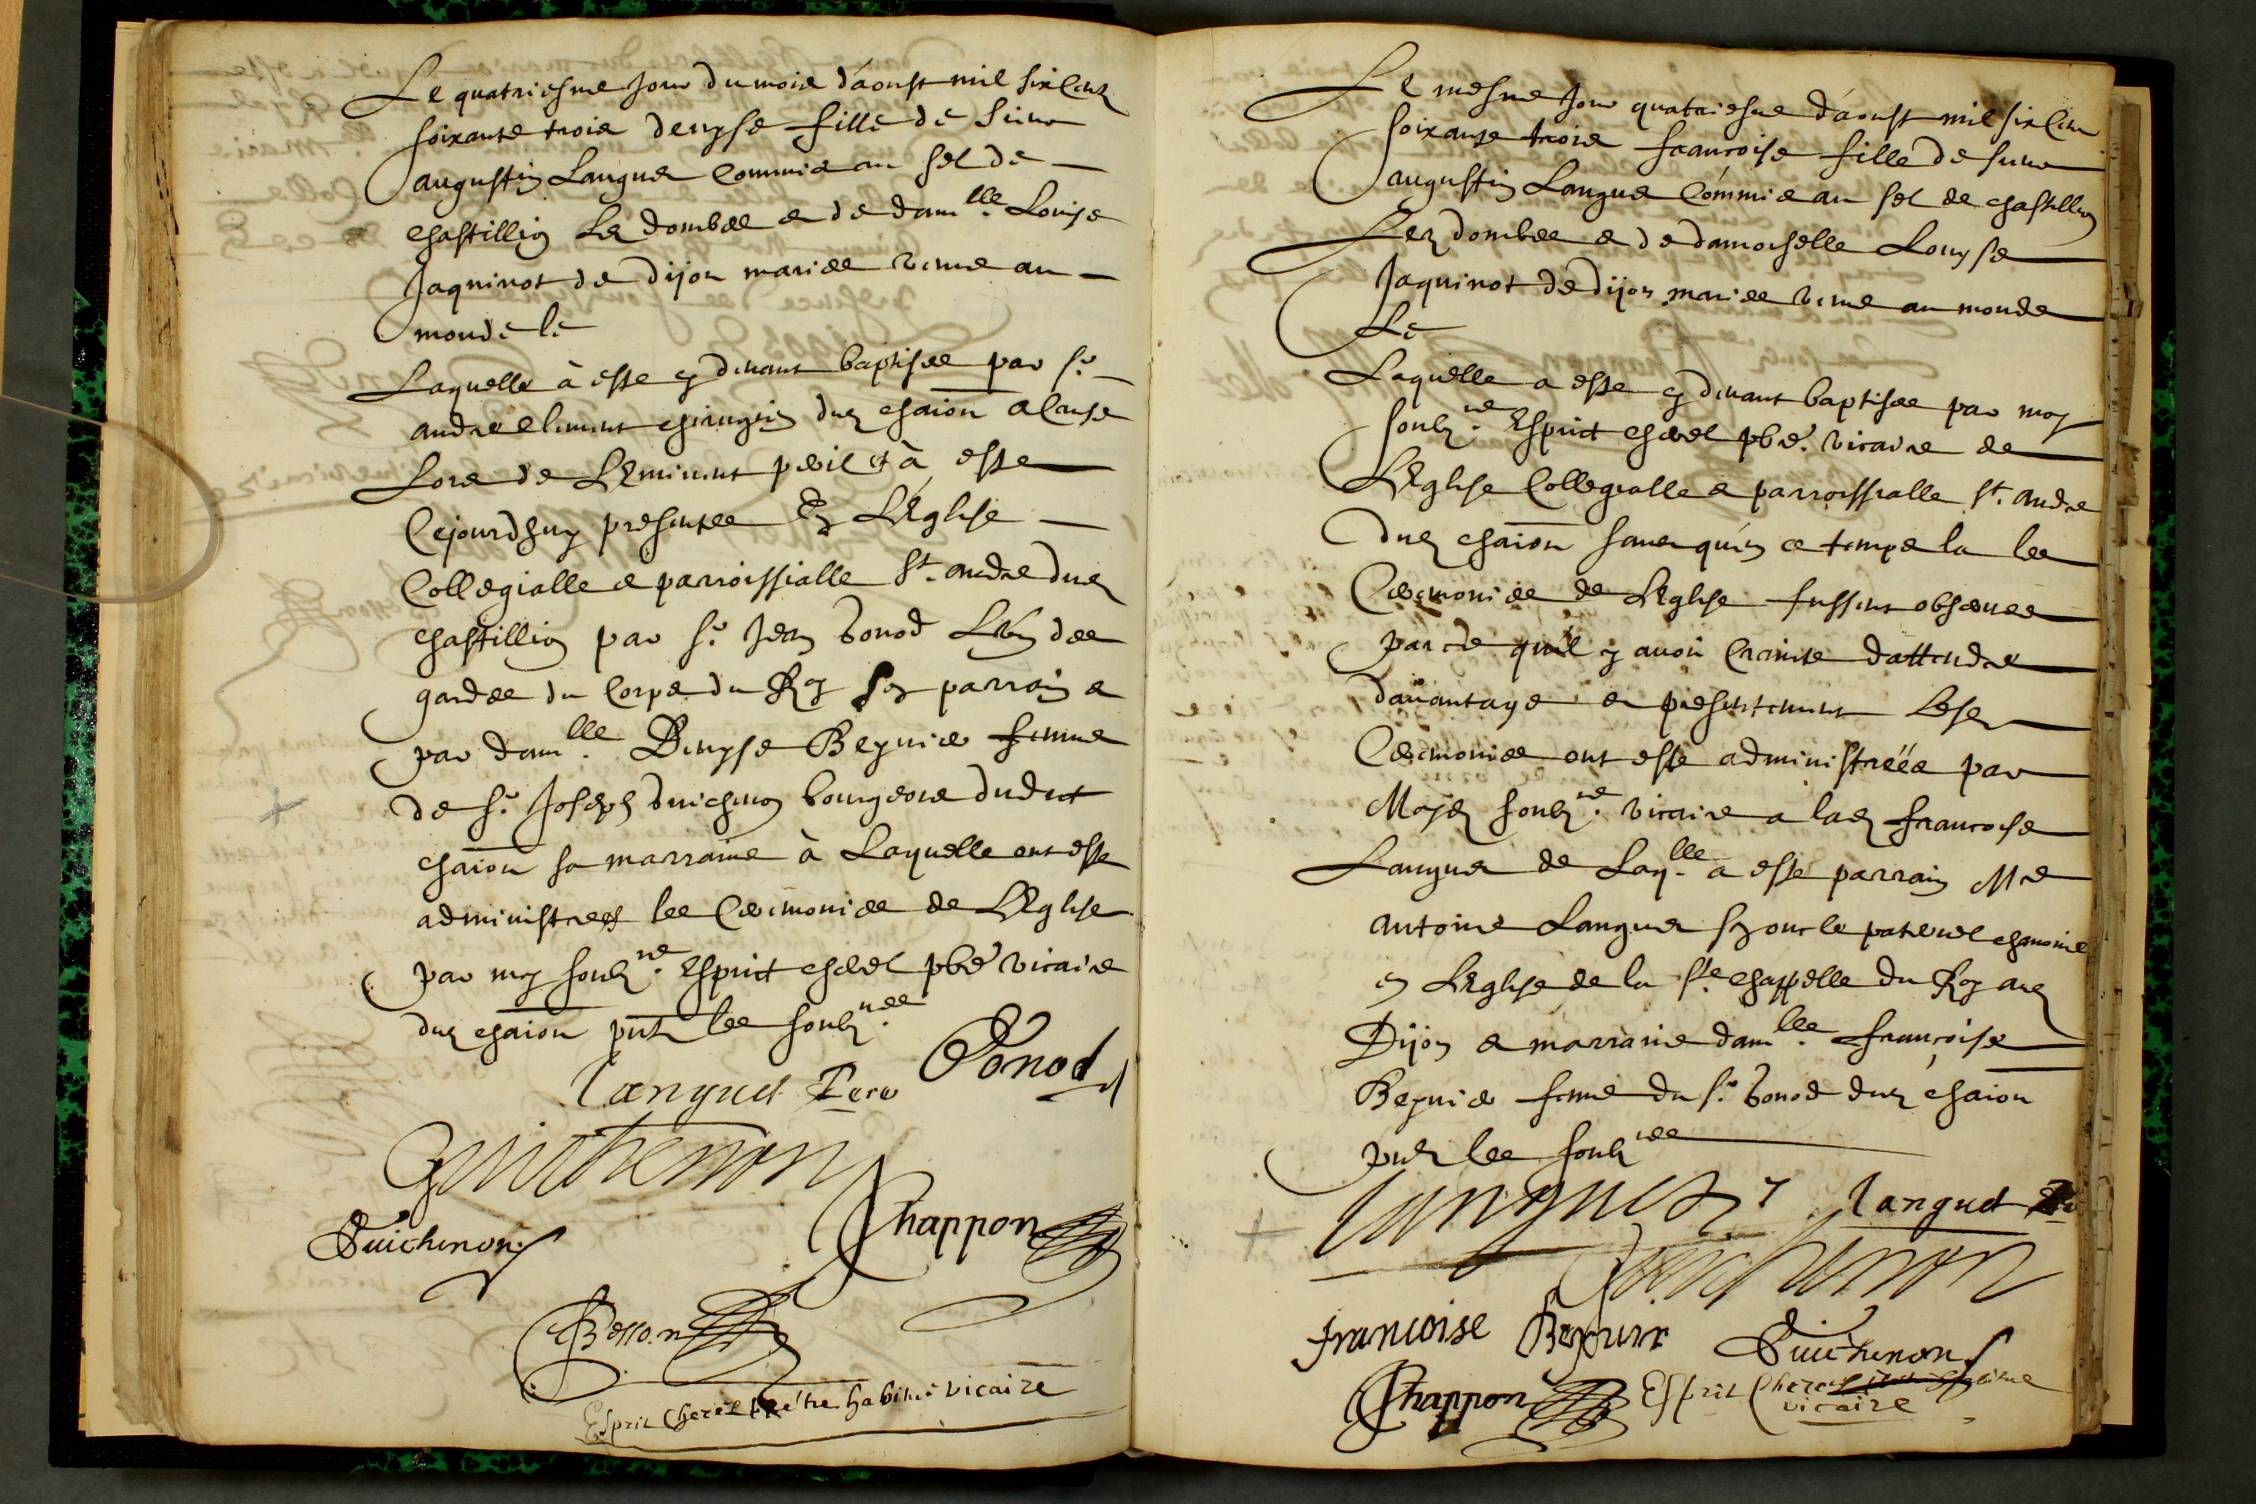 Le quatriesme jour du mois d'aoust mil six Cens
soixante trois denyse fille de Sieur
augustin Languet Commis au sel de
chastillion Les dombes e de dam.lle Louise
Jaquinot de dijon mariés venue au
monde le
Laquelle à esté cy devant baptisée par Sr
andre chirugin dud chaion a Cause
Lors de L'Eminent peril et à esté
Cejourdhuy presentée En L'Eglise
Collegialle e parroissialle St. andre dud
chastillion par Sr. Jean bonod des
gardes du Corps du Roy son parrain e
par dam.lle Denyse Beynier femme
de Sr. Joseph Guichenon bourgeois dudict
chaion sa marraine à Laquelle ont esté
administrees les Ceremonies de L'Eglise
par moy soub.né Esprit cherel pbre vicaire
dud chaion pnts les soub.nes
Languet Pere Bonod
Guichenon
Guichenon Chappon
Besson
Esprit Cherel prêtre habitué vicaire
Le mesme jour quatriesme d'aoust mil six Cens
soixante trois francoise fille de sieur
augustin Languet Commis au sel de chastillion
Lez dombes e de damoiselle Louyse
Jaquinot de dijon mariés venue au monde
Le
Laquelle a esté cy devant baptisée par moy
soub.né Esprict cherel pbre. vicaire de
L'Eglise Collegialle e parroissialle St. andre
dud chaion sans qu'en ce temps la les
Ceremonies de L'Eglise fussent observees
parce qu'il y avoit Crainte dattendre
davantage e presentement Lesd
Ceremonies ont esté administréés par
Moyd soub.né vicaire a lad francoise
Languet de Laq.lle a esté parrain Mre
antoine Languet son oncle paternel chanoine
en L'Eglise de la Ste chappelle du Roy aud
Dijon e marraine dam.lle françoise
Beynier feme du Sr. bonod dud chaion
pnts les soub.nes
Languet Languet
Guichenon
francoise Beynier Guichenon
Chappon Esprit Cherel
vicaire